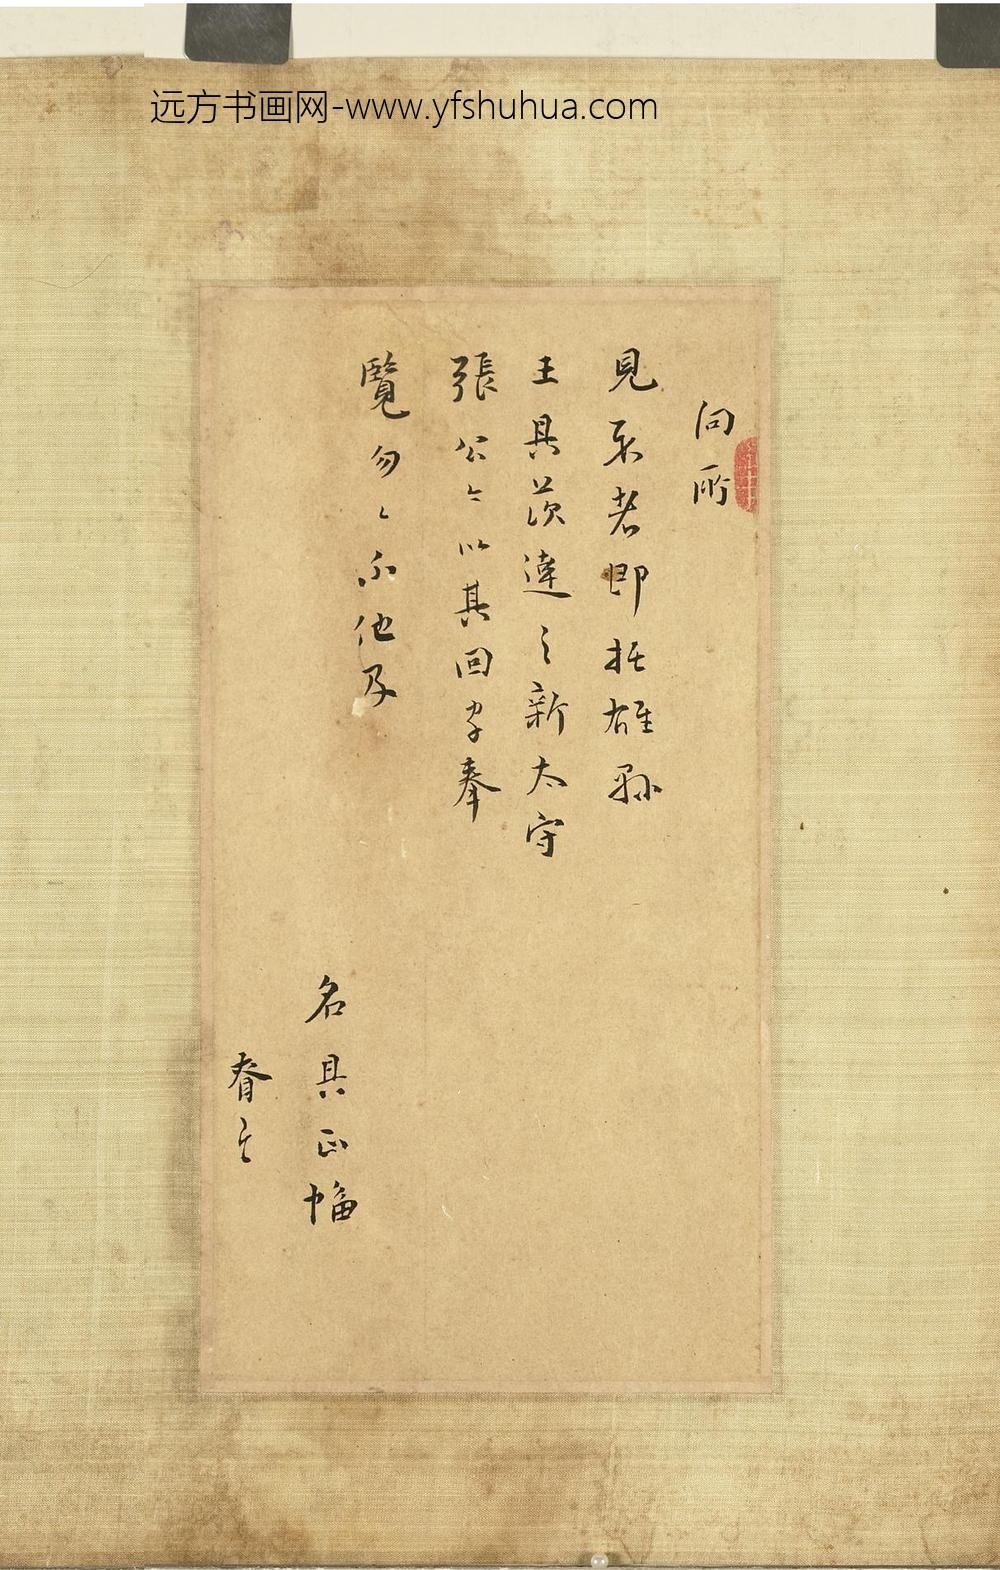 远方书画网-www.yfshuhua.com
向所
見示者即托雄縣
王具茨達之新太守
張公公以其回字奉
覽勿勿不他及
名具正幅
眷之